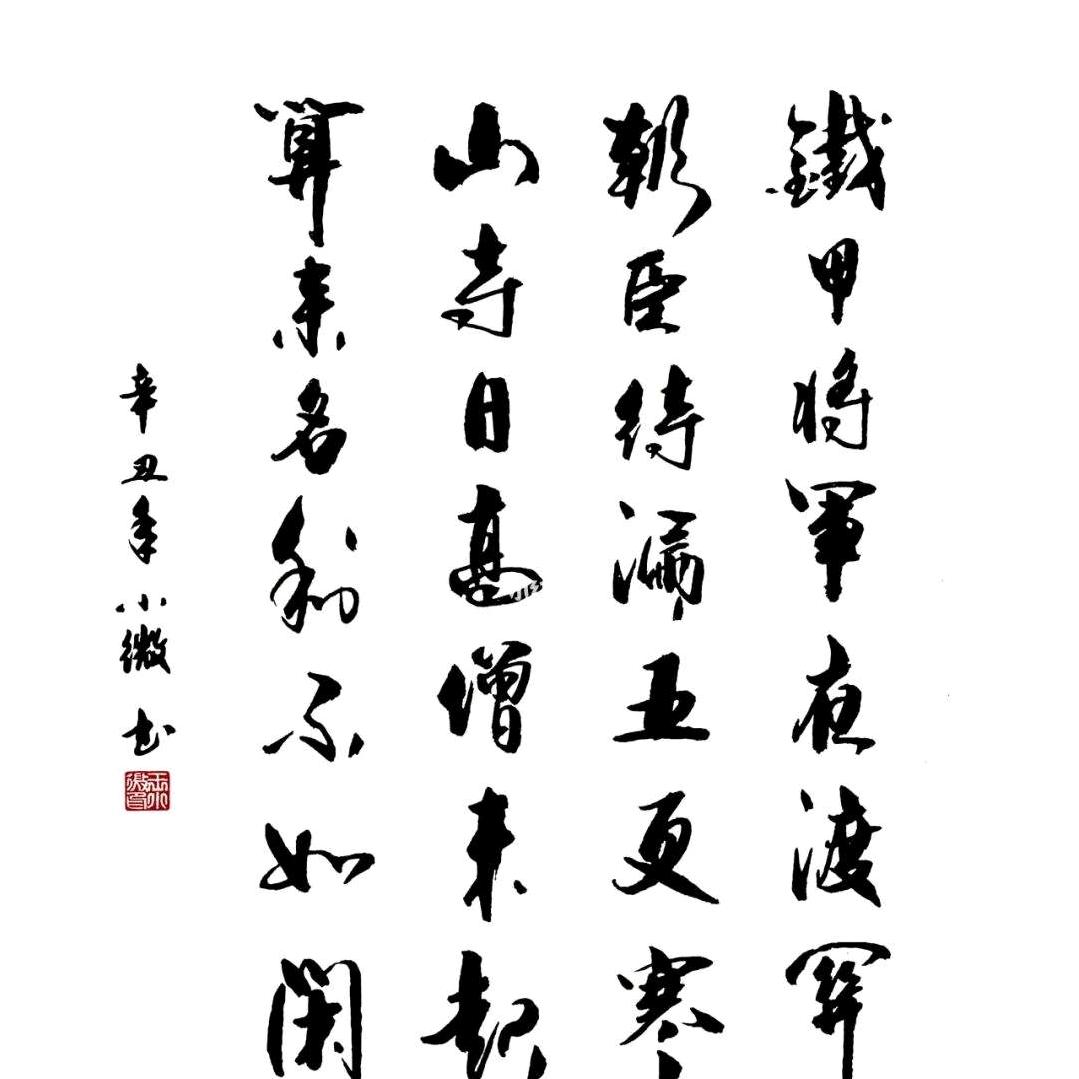 鐵甲將軍夜渡關
朝臣待漏五更寒
山寺日高僧未起
算来名利不如閑
辛丑年小微书